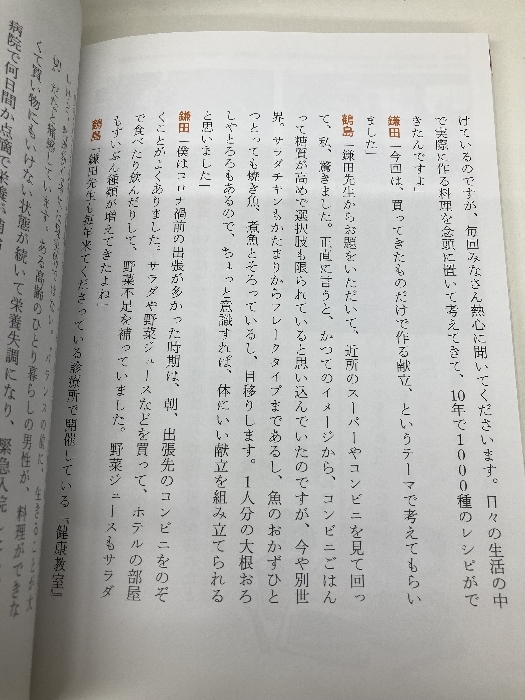 けているのですが、毎回みなさん熱心に聞いてくださいます。日々の生活の中
で実際に作る料理を念頭に置いて考えてきて、10年で1000種のレシピがで
きたんですよ」
鎌田「今回は、買ってきたものだけで作る献立、というテーマで考えてもらい
ました」
鶴島「鎌田先生からお題をいただいて、近所のスーパーやコンビニを見て回っ
て、私、驚きました。正直に言うと、かつてのイメージから、コンビニごはん
って糖質が高めで選択肢も限られていると思い込んでいたのですが、今や別世
界。サラダチキンもかたまりからフレークタイプまであるし、魚のおかずひと
つとっても焼き魚、煮魚とそろっているし、目移りします。1人分の大根おろ
しやとろろもあるので、ちょっと意識すれば、体にいい献立を組み立てられる
と思いました」
鎌田「僕はコロナ禍前の出張が多かった時期は、朝、出張先のコンビニをのぞ
くことがよくありました。サラダや野菜ジュースなどを買って、ホテルの部屋
で食べたり飲んだりして、野菜不足を補っていました。野菜ジュースもサラダ
もずいぶん種類が増えてきたよね」
鶴島「鎌田先生も毎年来てくださっている診療所で開催している『健康教室』
バランスの前に、生きることが大
だと痛感しています。ある高齢のひとり暮らしの男性が、料理ができな
くて買い物にも行けない状態が続いて栄養失調になり、緊急入院
病院で何日間か点滴で栄養